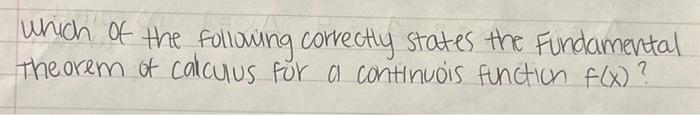 which of the following correctly states the Fundamental
theorem of calculus for a continuois function f(x)?